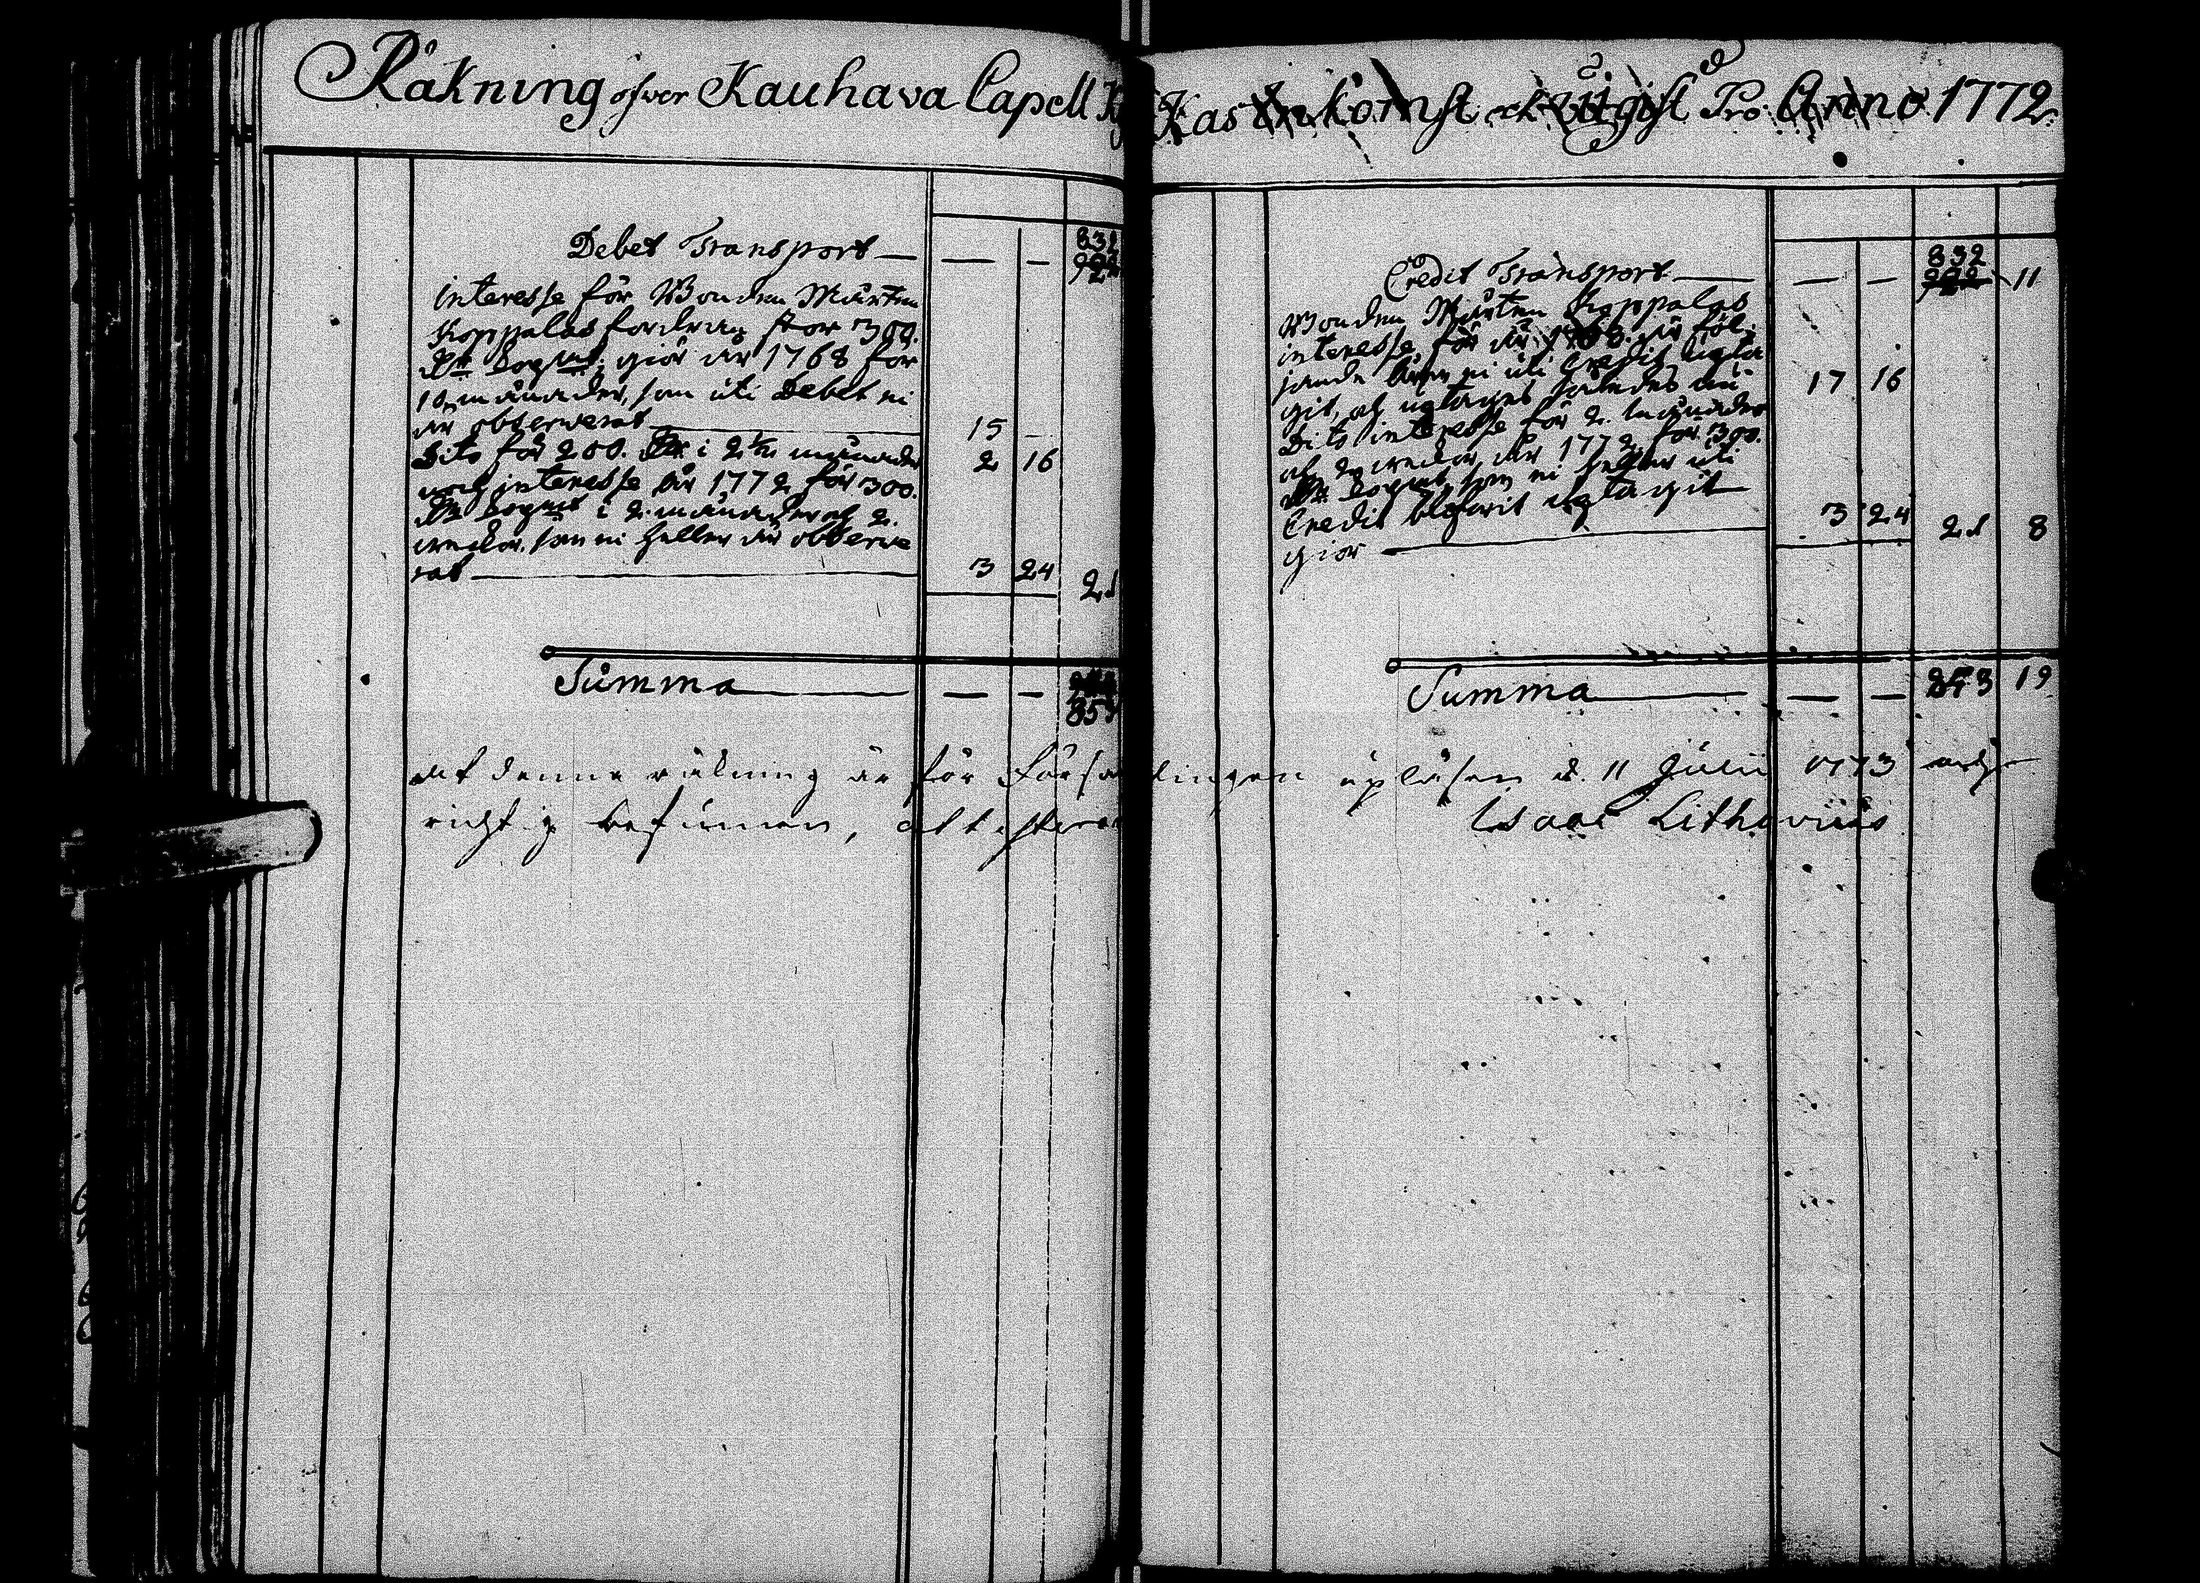 Räkning öfwer Kauhava Capell Kas Inkomst och Ütgift Pro Anno 1772.
Debet Transport — — — 832
interesse för Bonden Mårten
Koppalas fordran stor 300.
Dr Kopmt. giör år 1768 för
10 månader, som uti Debet ei
är observerat — 15 —
Dito för 200. Dr i 2½ månader 2 16
och interesse år 1772 för 300.
Dr Kopmt i 2 månader och 2.
weckor, som ei heller är observe
rat — 3 24 21
Summa — — — 853
Credit Transport — — — 832 11
Bonden Mårten Koppalas
interesse för år 1768. är föl
jande ei uti Credit upta
git, och uptages således nu 17 16
Dito interesse för 2. månader
och 2 weckor år 1772 för 300.
Dr Kopmt, som ei heller uti
Credit blefwit uptagit 3 24 21 8
giör —
Summa — — — 853 19
Att denne räkning är för Församlingen upläsen d. 11 Julii 1773 och
richtig befunnen, attesterar Isaac Lithovius